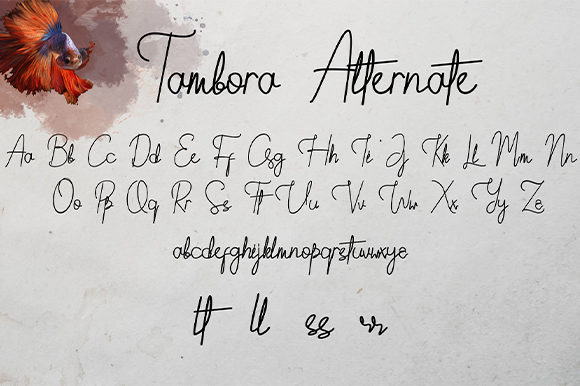 Tambora Alternate
Aa Bb Cc Dd Ee Ff Gg Hh Ii Jj Kk Ll Mm Nn
Oo Pp Qq Rr Ss Tt Uu Vv Ww Xx Yy Zz
abcdefghijklmnopqrstuvwxyz
tt ll ss rr